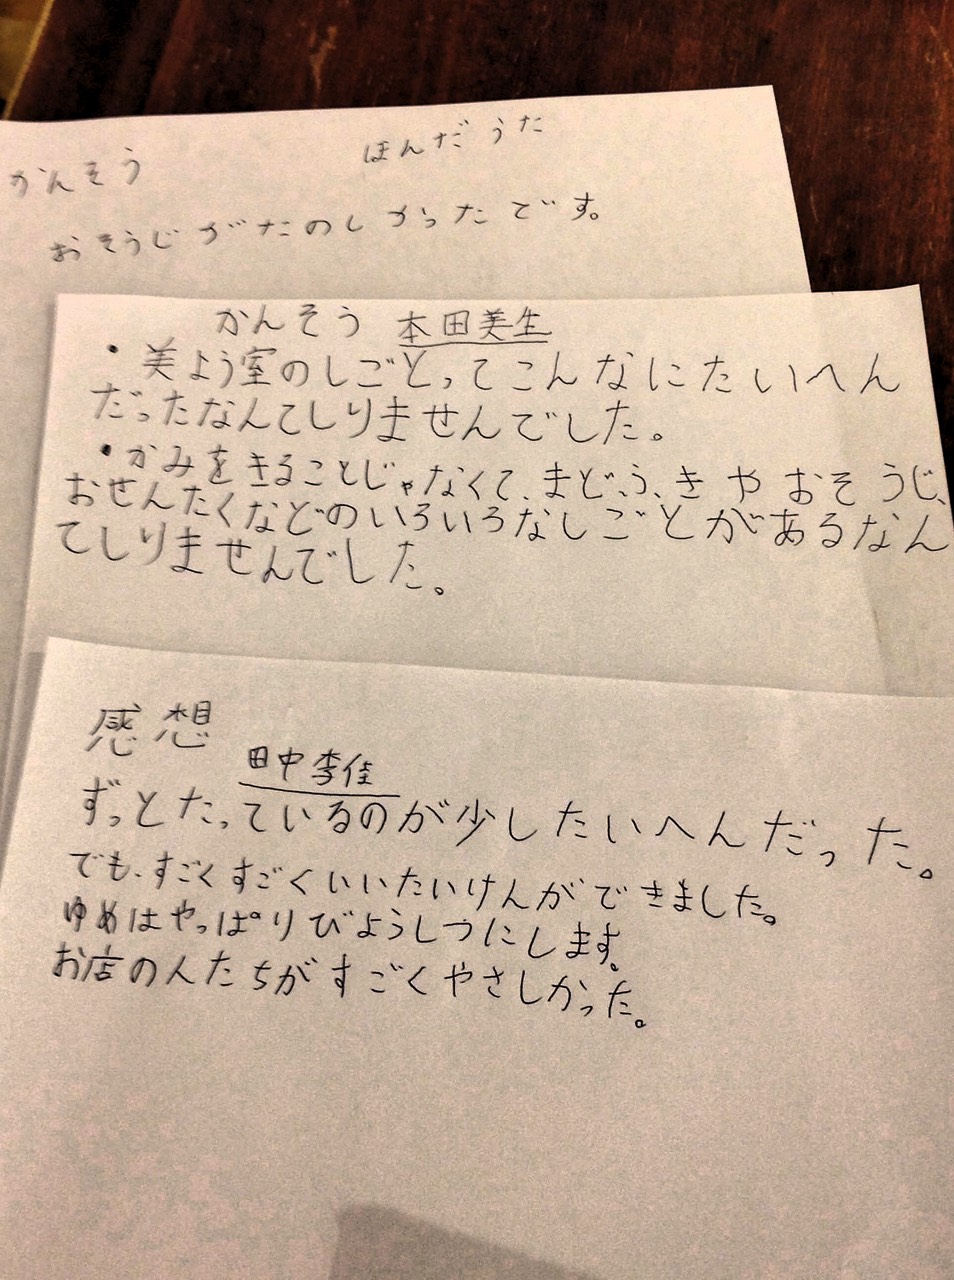 かんそう ほんだうた
おそうじがたのしかったです。
かんそう 本田美生
・美よう室のしごとってこんなにたいへん
だったなんてしりませんでした。
・かみをきることじゃなくて、まどふきやおそうじ、
おせんたくなどのいろいろなしごとがあるなん
てしりませんでした。
感想
田中李佳
ずっとたっているのが少したいへんだった。
でも、すごくすごくいいたいけんができました。
ゆめはやっぱりびようしつにします。
お店の人たちがすごくやさしかった。